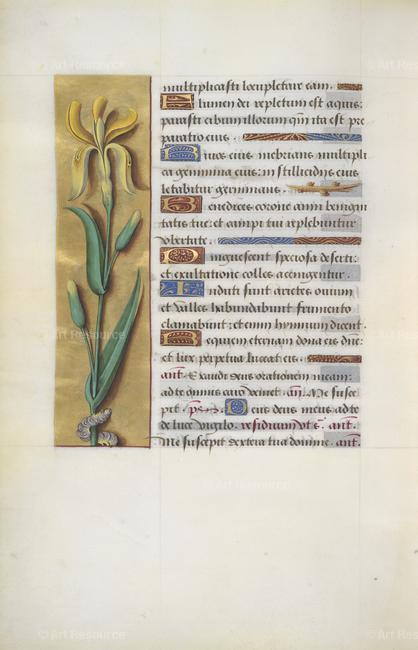 multiplicasti locupletare eam.
Flumen dei repletum est aquis:
parasti cibum illorum qm ita est pre
paratio eius.
Riuos eius inebrians multipli
ca germina eius: in stillicidiis eius
letabitur germinans.
Benedices corone anni benigni
tatis tue: et campi tui replebuntur
vbertate.
Pinguescent speciosa deserti:
et exultatione colles accingentur.
Induti sunt arietes ouium
et valles habundabunt frumento
clamabunt: etenim hymnum dicent.
Requiem eternam dona eis dne:
et lux perpetua luceat eis.
ant. Exaudi deus orationem meam:
ad te omnis caro veniet. an. Me susce
pit. ps. Deus deus meus ad te
de luce vigilo. ant.
Me suscepit dextera tua domine. ant.
© Art Resource
© Art Resource
© Art Resource
© Art Resource
© Art Resource
© Art Resource